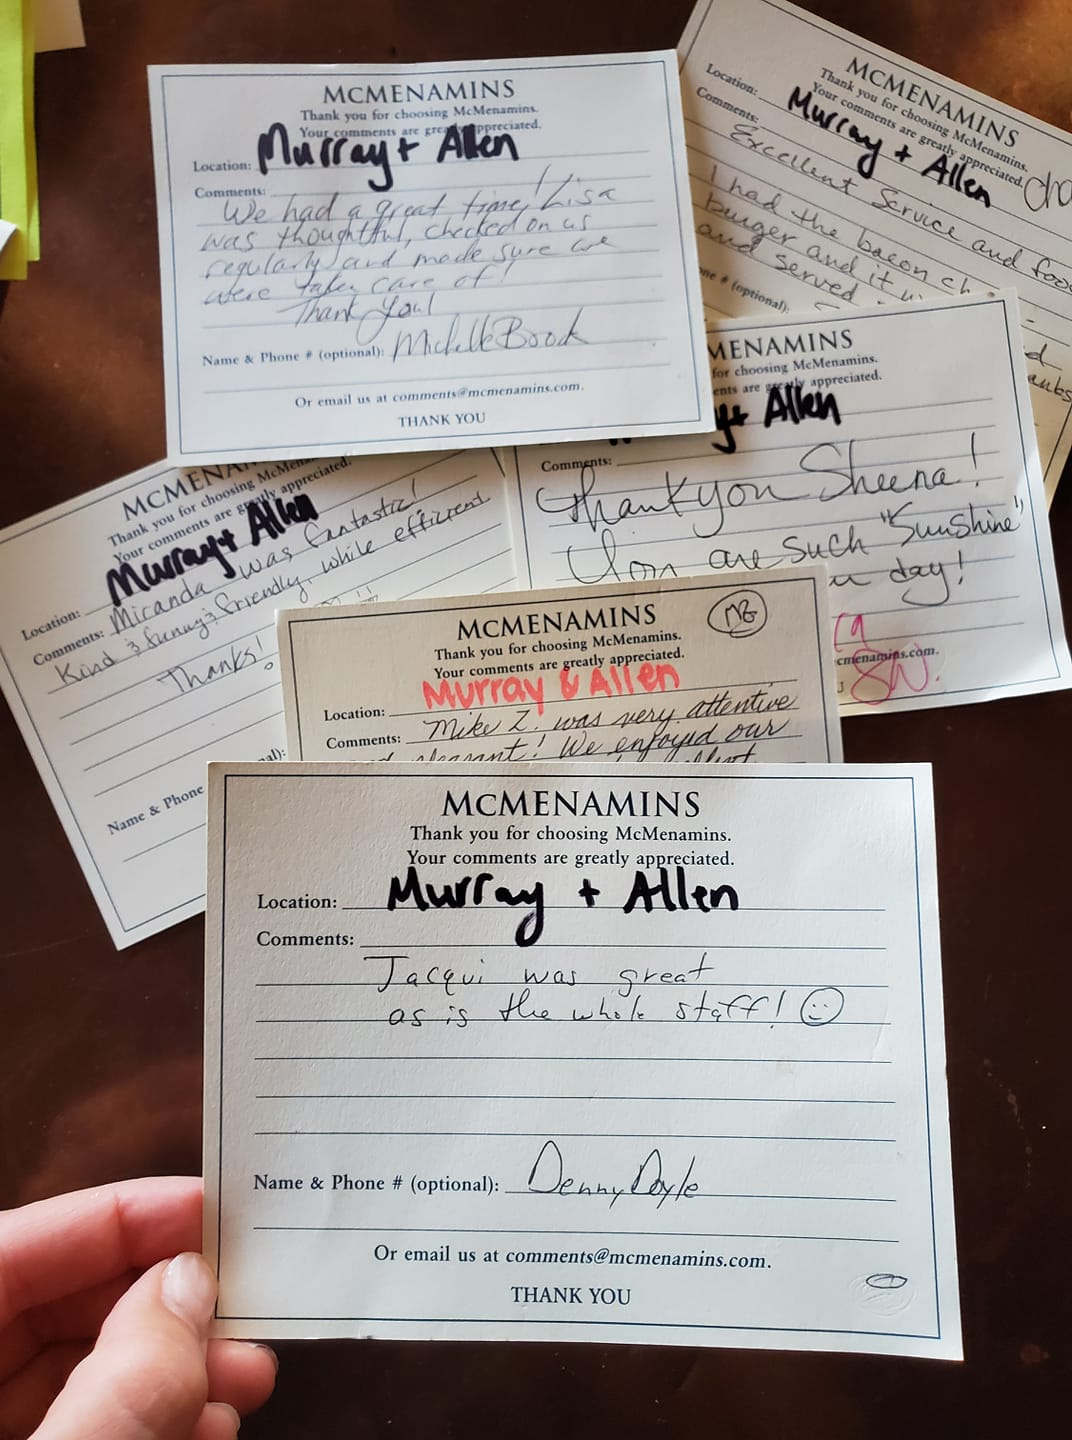 McMENAMINS
Thank you for choosing McMenamins.
Your comments are greatly appreciated.
Location: Murray + Allen
Comments:
We had a great time! Lisa
was thoughtful, checked on us
regularly and made sure we
were taken care of!
Thank You!
Name & Phone # (optional): Michelle Brook
Or email us at comments@mcmenamins.com.
THANK YOU
McMENAMINS
Thank you for choosing McMenamins.
Your comments are greatly appreciated.
Location: Murray + Allen
Comments:
Excellent Service and food
I had the bacon ch
burger and it
and served
(optional):
MENAMINS
for choosing McMenamins.
appreciated.
+ Allen
Comments:
Thank you Sheena!
You are such "Sunshine"
day!
cmenamins.com.
SW.
McMENA
Thank you for choosing McMenam
Your comments are greatly appreciated.
Location: Murray + Allen
Comments: Miranda was fantastic!
Kind & funny & friendly, while efficient
Thanks!
Name & Phone
McMENAMINS
Thank you for choosing McMenamins.
Your comments are greatly appreciated.
Location: Murray & Allen
Comments: Mike Z. was very attentive
pleasant! We enjoyed our
McMENAMINS
Thank you for choosing McMenamins.
Your comments are greatly appreciated.
Location: Murray + Allen
Comments:
Jacqui was great
as is the whole staff!
Name & Phone # (optional): Denny Doyle
Or email us at comments@mcmenamins.com.
THANK YOU